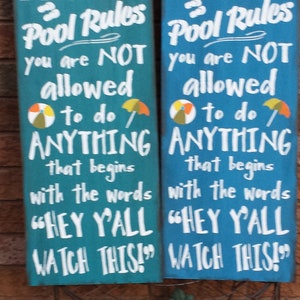 Pool Rules
you are NOT
allowed
to do
ANYTHING
that begins
with the words
"HEY Y'ALL
WATCH THIS!"
Pool Rules
you are NOT
allowed
to do
ANYTHING
that begins
with the words
"HEY Y'ALL
WATCH THIS!"